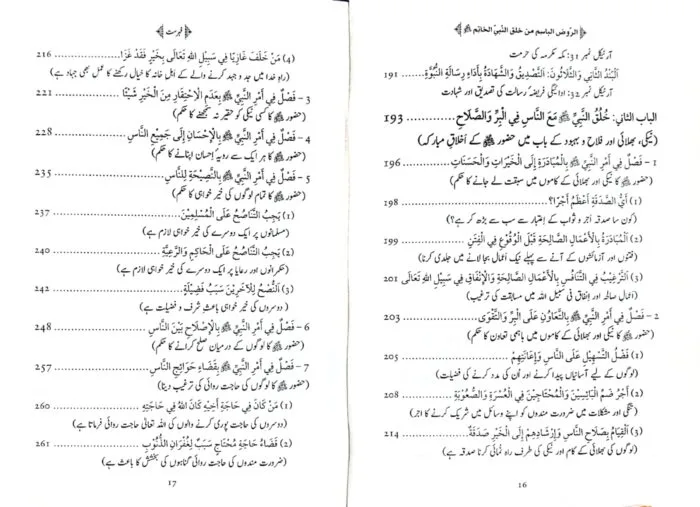 الرّوض الباسم من خلق النّبي الخاتم ﷺ
آرٹیکل نمبر 31: مکہ مکرمہ کی حرمت
اَلْبَنْدُ الثَّانِي وَالثَّلَاثُونَ: التَّصْدِيقُ وَالشَّهَادَةُ بِأَدَاءِ رِسَالَةِ النُّبُوَّةِ 191
آرٹیکل نمبر 32: ادائیگی فریضۂ رسالت کی تصدیق اور شہادت
الباب الثاني: خُلُقُ النَّبِيِّ ﷺ مَعَ النَّاسِ فِي الْبِرِّ وَالصَّلَاحِ 193
(نیکی، بھلائی اور فلاح و بہبود کے باب میں حضور ﷺ کے اَخلاقِ مبارکہ)
1 - فَصْلٌ فِي أَمْرِ النَّبِيِّ ﷺ بِالْمُبَادَرَةِ إِلَى الْخَيْرَاتِ وَالْحَسَنَاتِ 196
(حضور ﷺ کا نیکی اور بھلائی کے کاموں میں سبقت لے جانے کا حکم)
(1) أَيُّ الصَّدَقَةِ أَعْظَمُ أَجْرًا؟ 198
(کون سا صدقہ اَجر و ثواب کے اِعتبار سے سب سے بڑھ کر ہے؟)
(2) اَلْمُبَادَرَةُ بِالْأَعْمَالِ الصَّالِحَةِ قَبْلَ الْوُقُوعِ فِي الْفِتَنِ 199
(فتنوں اور آزمائشوں کے آنے سے پہلے نیک اَعمال بجا لانے میں جلدی کرنا)
(3) اَلتَّرْغِيبُ فِي التَّنَافُسِ بِالْأَعْمَالِ الصَّالِحَةِ وَالْإِنْفَاقِ فِي سَبِيلِ اللهِ تَعَالَى 201
(اَعمالِ صالحہ اور اِنفاق فی سبیل اللہ میں مسابقت کی ترغیب)
2 - فَصْلٌ فِي أَمْرِ النَّبِيِّ ﷺ بِالتَّعَاوُنِ عَلَى الْبِرِّ وَالتَّقْوَى 203
(حضور ﷺ کا نیکی اور بھلائی کے کاموں میں باہمی تعاون کا حکم)
(1) فَضْلُ التَّسْهِيلِ عَلَى النَّاسِ وَإِعَانَتِهِمْ 205
(لوگوں کے لیے آسانیاں پیدا کرنے اور اُن کی مدد کرنے کی فضیلت)
(2) أَجْرُ ضَمِّ الْبَائِسِينَ وَالْمُحْتَاجِينَ فِي الْعُسْرَةِ وَالصُّعُوبَةِ 208
(تنگی اور مشکلات میں ضرورت مندوں کو اپنے وسائل میں شریک کرنے کا اجر)
(3) اَلْقِيَامُ بِصَلَاحِ النَّاسِ وَإِرْشَادِهِمْ إِلَى الْخَيْرِ صَدَقَةٌ 214
(لوگوں کی بھلائی کے کام اور نیکی کی طرف راہ نمائی کرنا صدقہ ہے)
16
فہرست
(4) مَنْ خَلَفَ غَازِيًا فِي سَبِيلِ اللهِ تَعَالَى بِخَيْرٍ فَقَدْ غَزَا 216
(راہِ خدا میں جد و جہد کرنے والے کے اہل خانہ کا خیال رکھنے کا عمل بھی جہاد ہے)
3 - فَصْلٌ فِي أَمْرِ النَّبِيِّ ﷺ بِعَدَمِ الِاحْتِقَارِ مِنَ الْخَيْرِ شَيْئًا 221
(حضور ﷺ کا کسی نیکی کو حقیر نہ سمجھنے کا حکم)
4 - فَصْلٌ فِي أَمْرِ النَّبِيِّ ﷺ بِالْإِحْسَانِ إِلَى جَمِيعِ النَّاسِ 228
(حضور ﷺ کا ہر ایک سے رویۂ اِحسان اپنانے کا حکم)
5 - فَصْلٌ فِي أَمْرِ النَّبِيِّ ﷺ بِالنَّصِيحَةِ لِلنَّاسِ 235
(حضور ﷺ کا تمام لوگوں کی خیر خواہی کا حکم)
(1) يَجِبُ التَّنَاصُحُ عَلَى الْمُسْلِمِينَ 237
(مسلمانوں پر ایک دوسرے کی خیر خواہی لازم ہے)
(2) يَجِبُ التَّنَاصُحُ عَلَى الْحَاكِمِ وَالرَّعِيَّةِ 240
(حکمرانوں اور رعایا پر ایک دوسرے کی خیر خواہی لازم ہے)
(3) اَلنُّصْحُ لِلْآخَرِينَ سَبَبُ فَضِيلَةٍ 242
(دوسروں کی خیر خواہی باعثِ شرف و فضیلت ہے)
6 - فَصْلٌ فِي أَمْرِ النَّبِيِّ ﷺ بِالْإِصْلَاحِ بَيْنَ النَّاسِ 248
(حضور ﷺ کا لوگوں کے درمیان صلح کرانے کا حکم)
7 - فَصْلٌ فِي أَمْرِ النَّبِيِّ ﷺ بِقَضَاءِ حَوَائِجِ النَّاسِ 257
(حضور ﷺ کا لوگوں کی حاجت روائی کی ترغیب دینا)
(1) مَنْ كَانَ فِي حَاجَةِ أَخِيهِ كَانَ اللهُ فِي حَاجَتِهِ 260
(دوسروں کی حاجت پوری کرنے والوں کی اللہ تعالی حاجت روائی فرماتا ہے)
(2) قَضَاءُ حَاجَةِ مُحْتَاجٍ سَبَبٌ لِغُفْرَانِ الذُّنُوبِ 261
(ضرورت مندوں کی حاجت روائی گناہوں کی بخشش کا باعث ہے)
17